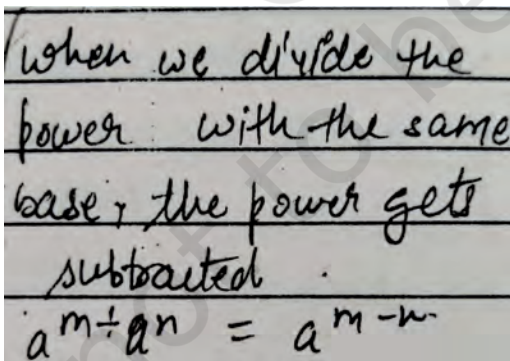 when we divide the
power with the same
base, the power gets
subtracted.
a^m ÷ a^n = a^m-n